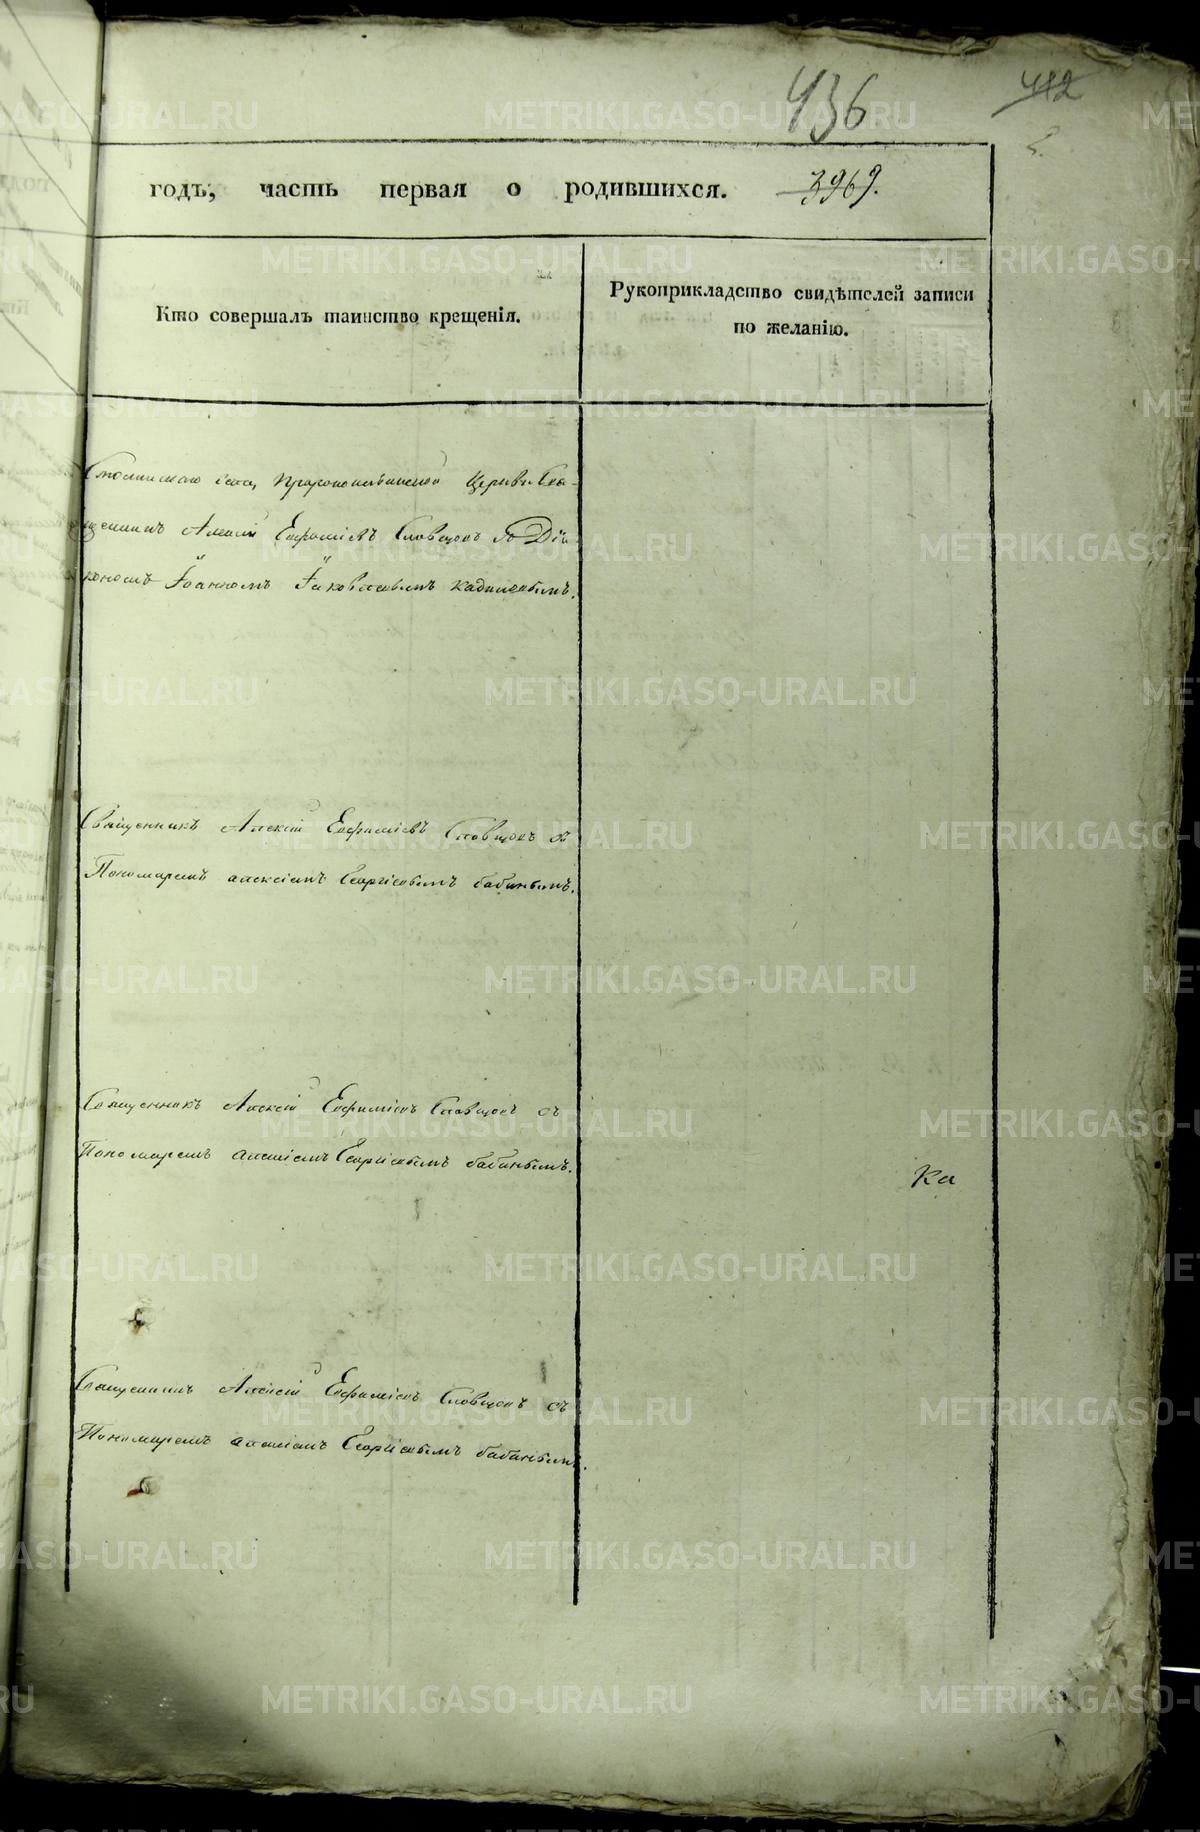 436
412
годъ, часть первая о родившихся. 3969.
Кто совершалъ таинство крещенія.
Рукоприкладство свидѣтелей записи
по желанію.
Церкви Свя-
щенникъ Алексій Евфиміевъ Словцовъ съ Діа-
кономъ Іоанномъ Іаковлевымъ
Священникъ Алексій Евфиміевъ Словцовъ съ
Пономаремъ алексіемъ Георгіевымъ бабинымъ.
Священникъ Алексій Евфиміевъ Словцовъ съ
Пономаремъ алексіемъ Георгіевымъ бабинымъ.
Ка
Священникъ Алексій Евфиміевъ Словцовъ съ
Пономаремъ алексіемъ Георгіевымъ бабинымъ.
METRIKI.GASO-URAL.RU